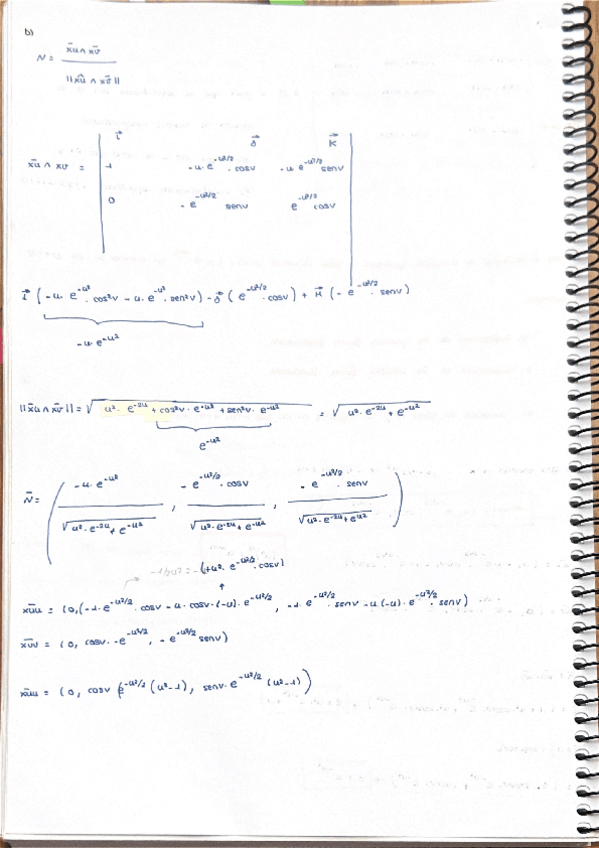 b)
N = x̄u ∧ x̄v / ||x̄u ∧ x̄v||
x̄u ∧ xv = | i⃗ j⃗ k⃗ |
| 1 -u·e^(-u²/2)·cosv -u·e^(-u²/2) senv |
| 0 -e^(-u²/2) senv e^(-u²/2) cosv |
i⃗ (-u·e^(-u²)·cos²v - u·e^(-u²)·sen²v) - j⃗ (e^(-u²/2)·cosv) + k⃗ (-e^(-u²/2)·senv)
-u·e^(-u²)
||x̄u ∧ x̄v|| = √(u²·e^(-2u) + cos²v·e^(-u²) + sen²v·e^(-u²)) = √(u²·e^(-2u) + e^(-u²))
e^(-u²)
N̄ = ( -u·e^(-u²) / √(u²·e^(-2u) + e^(-u²)) , -e^(-u²/2)·cosv / √(u²·e^(-2u) + e^(-u²)) , -e^(-u²/2)·senv / √(u²·e^(-2u) + e^(-u²)) )
(1+u²·e^(-u²/2)·cosv)
x̄uu = (0, (-1·e^(-u²/2)·cosv - u·cosv·(-u)·e^(-u²/2), -1·e^(-u²/2)·senv - u(-u)·e^(-u²/2)·senv)
x̄vv = (0, cosv·-e^(-u²/2), -e^(-u²/2) senv)
x̄uu = (0, cosv (e^(-u²/2) (u²-1), senv·e^(-u²/2) (u²-1))